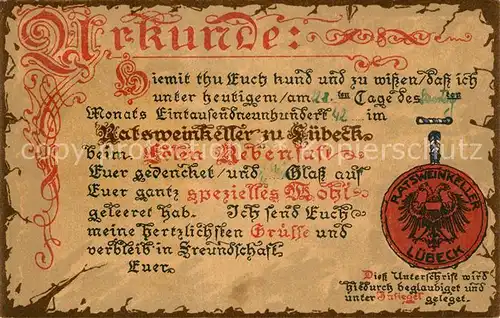 Urkunde:
Hiemit thu Euch kund und zu wißen/daß ich
unter heutigem/am 28.ten Tage des ten
Monats Eintausendneunhundert 42 im
Ratsweinkeller zu Lübeck
beim Edlen Rebensaft
Euer gedencket/und Glaß auf
Euer gantz spezielles Wohl
geleeret hab. Ich send Euch
meine hertzlichsten Grüsse und
verbleib in Freundschaft
Euer.
RATSWEINKELLER
LÜBECK
Dieß Unterschrift wird
hiedurch beglaubiget und
unter Insiegel geleget.
copyright by ansichtskartenschatz